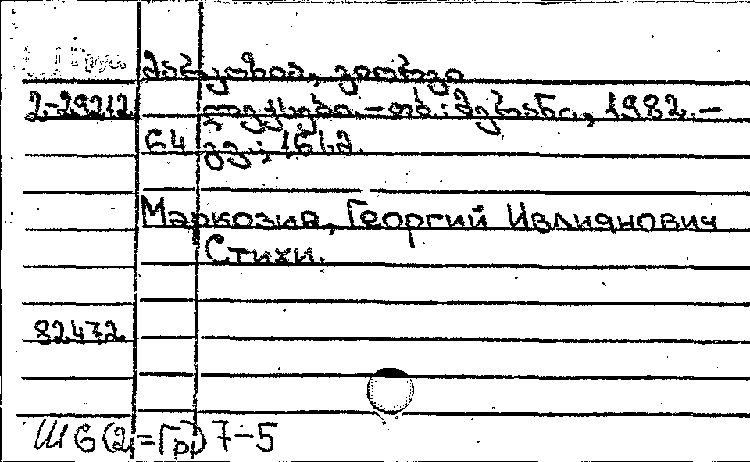 მარკოზია, გიორგი
2-29212 ლექსები. – თბ.: მერანი, 1982. –
64 გვ.; 16 სმ.
Маркозия, Георгий Ивлианович
Стихи.
82472
Ш6(2=Гр)7-5